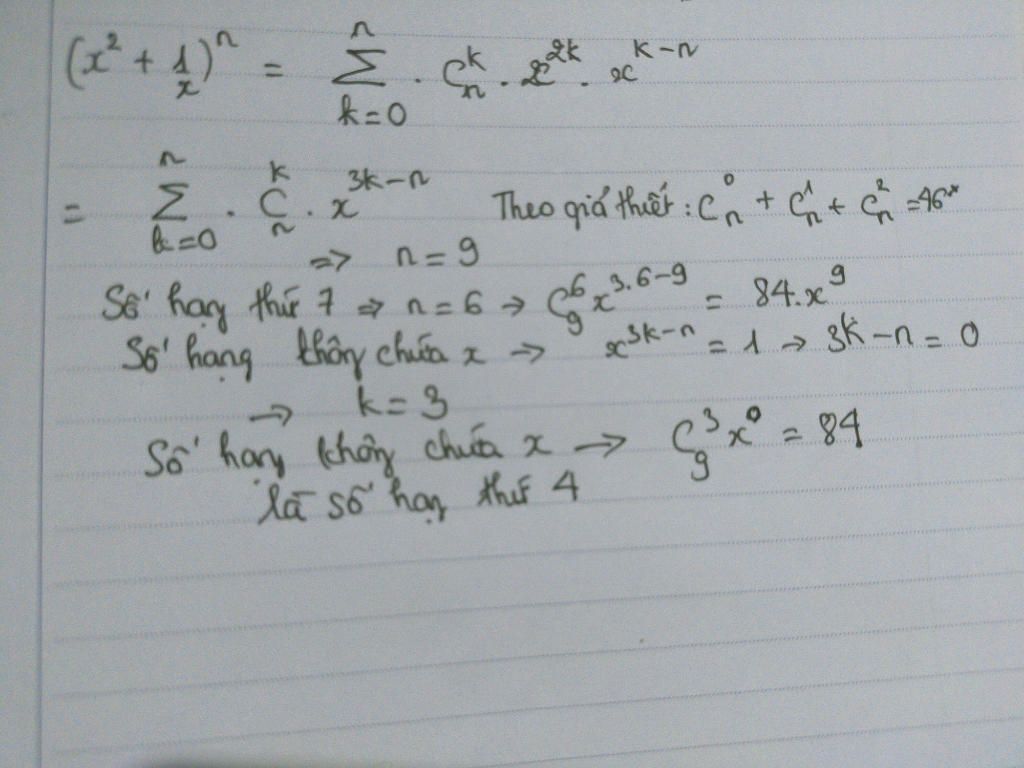 (x² + 1/x)ⁿ = Σ_{k=0}^{n} . C_n^k . x^{2k} . x^{k-n}
= Σ_{k=0}^{n} . C_n^k . x^{3k-n} Theo giả thiết : C_n^0 + C_n^1 + C_n^2 = 46
=> n = 9
Số hạng thứ 7 => n = 6 → C_9^6 x^{3.6-9} = 84.x^9
Số hạng không chứa x → x^{3k-n} = 1 → 3k-n = 0
→ k = 3
Số hạng không chứa x → C_9^3 x^0 = 84
là số hạng thứ 4